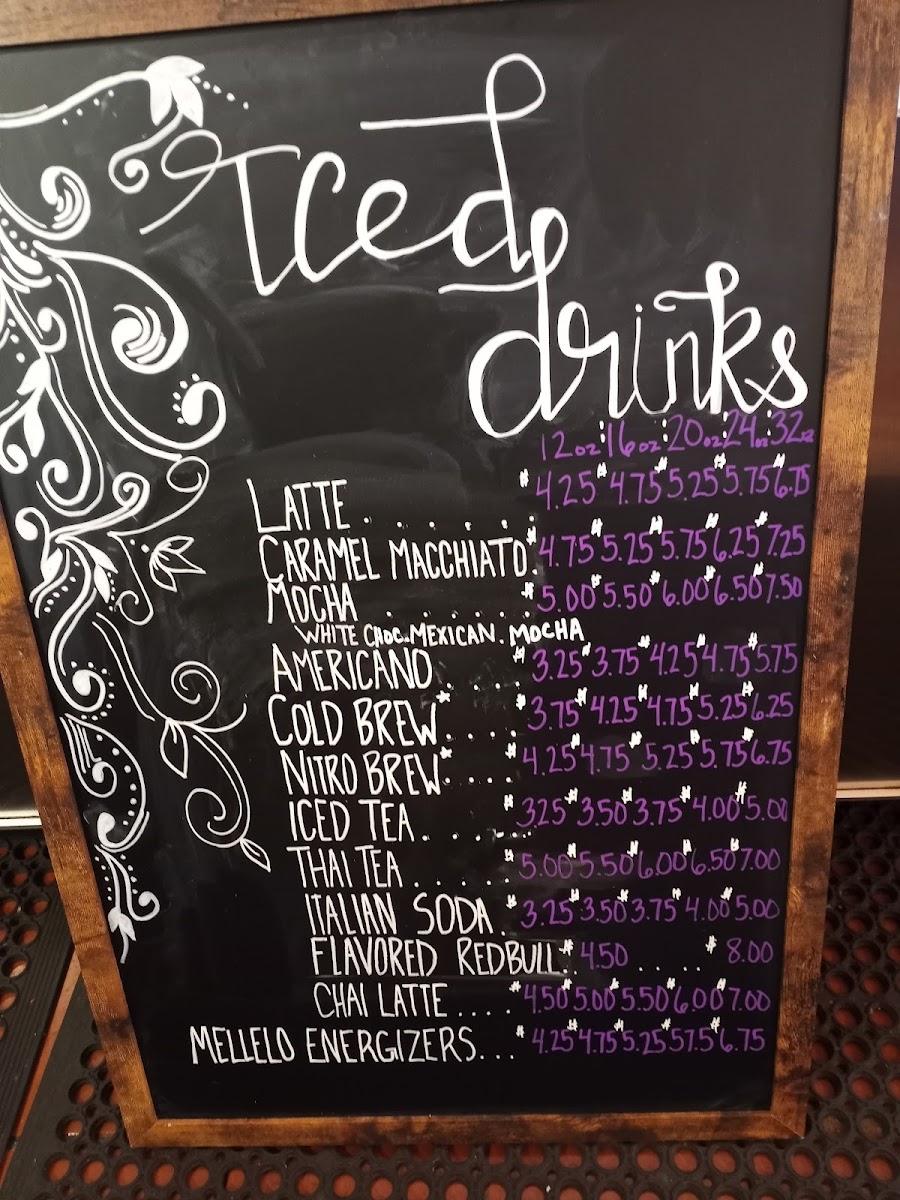 Iced
drinks
12oz:16oz:20oz:24oz:32oz
LATTE . . . . . . $4.25 $4.75 $5.25 $5.75 $6.75
CARAMEL MACCHIATO: $4.75 $5.25 $5.75 $6.25 $7.25
MOCHA . . . . . . . $5.00 $5.50 $6.00 $6.50 $7.50
WHITE CHOC. MEXICAN. MOCHA
AMERICANO. . . . . $3.25 $3.75 $4.25 $4.75 $5.75
COLD BREW* . . . . $3.75 $4.25 $4.75 $5.25 $6.25
NITRO BREW* . . . . $4.25 $4.75 $5.25 $5.75 $6.75
ICED TEA. . . . . . $325 $3.50 $3.75 $4.00 $5.00
THAI TEA . . . . . $5.00 $5.50 $6.00 $6.50 $7.00
ITALIAN SODA . $3.25 $3.50 $3.75 $4.00 $5.00
FLAVORED REDBULL. $4.50 . . . . . $8.00
CHAI LATTE . . . . $4.50 $5.00 $5.50 $6.00 $7.00
MELLELO ENERGIZERS... $4.25 $4.75 $5.25 $57.5 $6.75